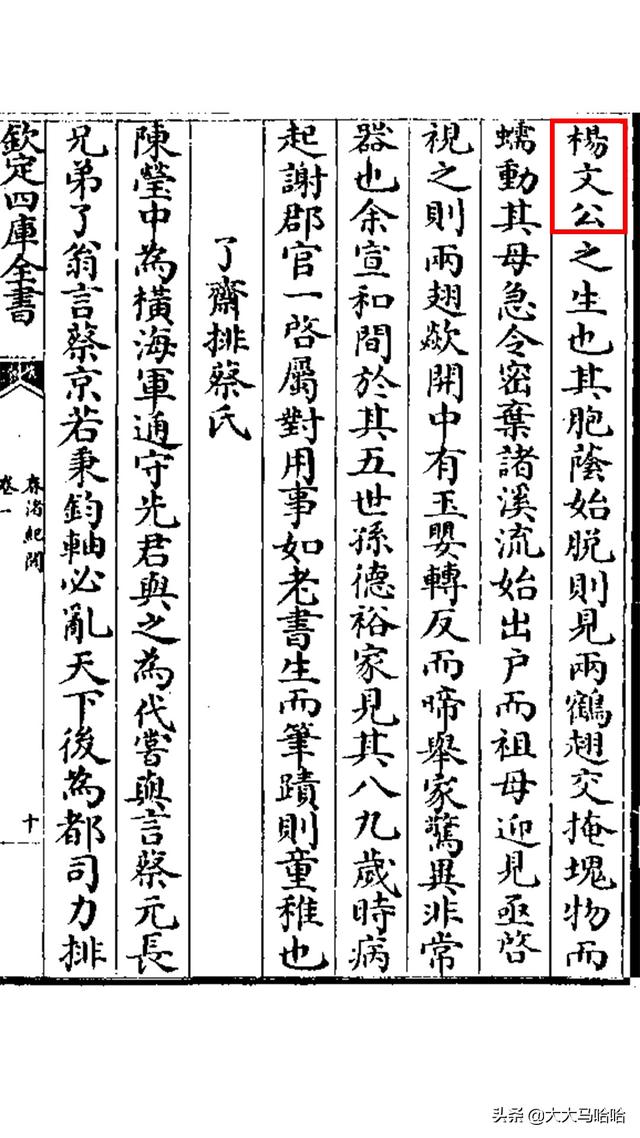 楊文公之生也其胞蔭始脱則見兩鶴翅交掩塊物而
蠕動其母急令密棄諸溪流始出户而祖母迎見亟啓
視之則兩翅歘開中有玉嬰轉反而啼舉家驚異非常
器也余宣和間於其五世孫德裕家見其八九歲時病
起謝郡官一啓屬對用事如老書生而筆蹟則童稚也
了齋排蔡氏
陳瑩中為橫海軍通守先君與之為代嘗與言蔡元長
兄弟了翁言蔡京若秉鈞軸必亂天下後為都司力排
欽定四庫全書
春渚紀聞
卷一
十
头条 @大大马哈哈